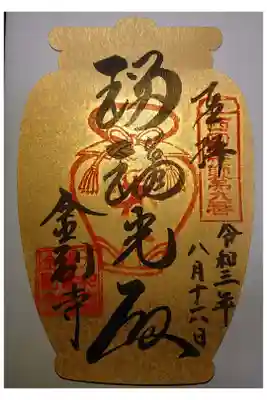 奉拝
令和三年
八月十六日
瑠璃光殿
金剛寺